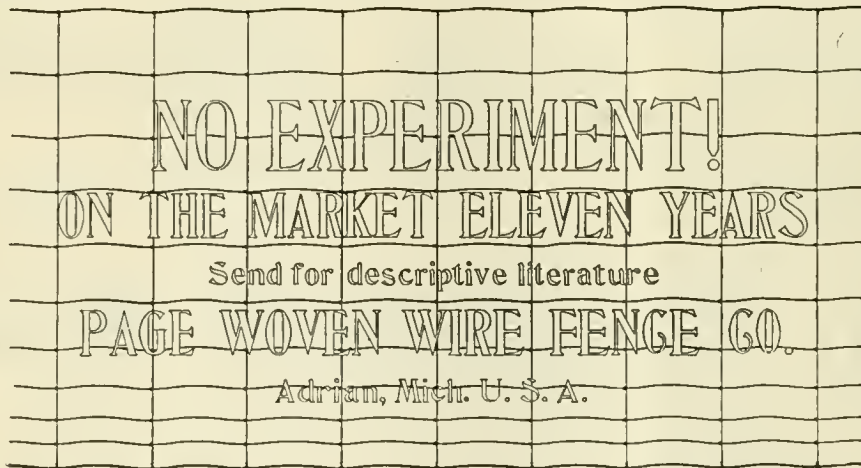 NO EXPERIMENT!
ON THE MARKET ELEVEN YEARS
Send for descriptive literature
PAGE WOVEN WIRE FENCE CO.
Adrian, Mich. U. S. A.